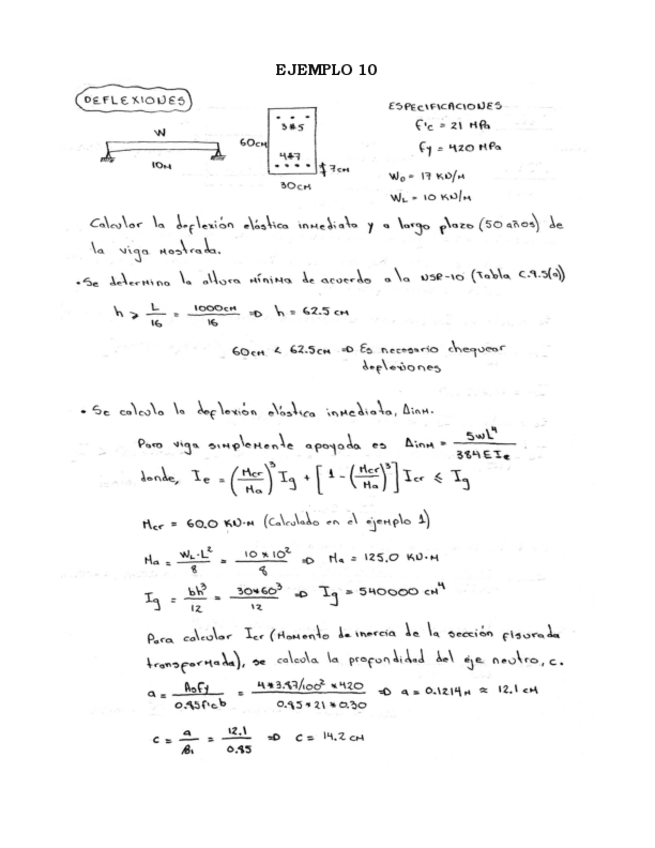 EJEMPLO 10
DEFLEXIONES
W
10M
60CM
3#5
4#7
7CM
30CM
ESPECIFICACIONES
f'c = 21 MPa
fy = 420 MPa
WD = 17 KN/M
WL = 10 KN/M
Calcular la deflexión elástica inmediata y a largo plazo (50 años) de
la viga mostrada.
• Se determina la altura mínima de acuerdo a la NSR-10 (Tabla C.9.5(a))
h ≥ L/16 = 1000cm/16 ⇒ h = 62.5 cm
60cm < 62.5cm ⇒ Es necesario chequear
deflexiones
• Se calcula la deflexión elástica inmediata, Δinm.
Para viga simplemente apoyada es Δinm = 5wL⁴/384EIe
donde, Ie = (Mcr/Ma)³ Ig + [1 - (Mcr/Ma)³] Icr ≤ Ig
Mcr = 60.0 KN·M (Calculado en el ejemplo 1)
Ma = WL·L²/8 = 10*10²/8 ⇒ Ma = 125.0 KN·M
Ig = bh³/12 = 30*60³/12 ⇒ Ig = 540000 cm⁴
Para calcular Icr (Momento de inercia de la sección fisurada
transformada), se calcula la profundidad del eje neutro, c.
a = Asfy/0.85f'cb = 4*3.87/100² *420/0.85*21*0.30 ⇒ a = 0.1214M ≈ 12.1 cm
c = a/β1 = 12.1/0.85 ⇒ c = 14.2 cm